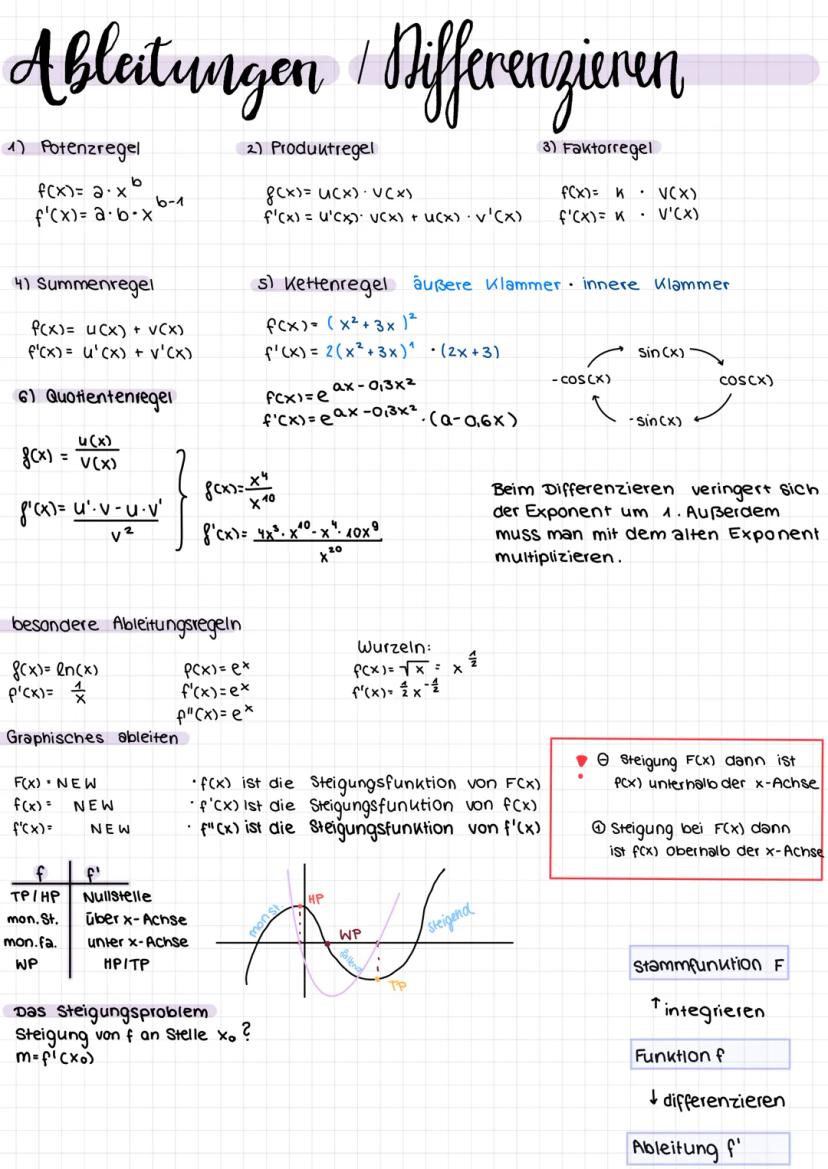 Ableitungen / Differenzieren
1) Potenzregel
f(x)= a · x^b
f'(x)= a · b · x^b-1
2) Produktregel
f(x)= u(x) · v(x)
f'(x)= u'(x) · v(x) + u(x) · v'(x)
3) Faktorregel
f(x)= k · v(x)
f'(x)= k · v'(x)
4) Summenregel
f(x)= u(x) + v(x)
f'(x)= u'(x) + v'(x)
5) Kettenregel äußere Klammer · innere Klammer
f(x)= (x² + 3x)²
f'(x)= 2(x² + 3x)¹ · (2x+3)
f(x)= e^ax - 0,3x²
f'(x)= e^ax - 0,3x² · (a - 0,6x)
sin(x)
-cos(x) cos(x)
-sin(x)
6) Quotientenregel
f(x) = u(x)/v(x)
f'(x)= u'·v - u·v'/v²
f(x)= x⁴/x¹⁰
f'(x)= 4x³ · x¹⁰ - x⁴ · 10x⁹/x²⁰
Beim Differenzieren veringert sich
der Exponent um 1. Außerdem
muss man mit dem alten Exponent
multiplizieren.
besondere Ableitungsregeln
f(x)= ln(x)
f'(x)= 1/x
f(x)= e^x
f'(x)= e^x
f''(x)= e^x
Wurzeln:
f(x)= √x = x^1/2
f'(x)= 1/2 x^-1/2
Graphisches ableiten
F(x) = N E W
f(x) = N E W
f'(x)= N E W
· f(x) ist die Steigungsfunktion von F(x)
· f'(x) ist die Steigungsfunktion von f(x)
· f''(x) ist die Steigungsfunktion von f'(x)
! ⊖ Steigung F(x) dann ist
f(x) unterhalb der x-Achse
⊕ Steigung bei F(x) dann
ist f(x) oberhalb der x-Achse
f f'
TP/HP Nullstelle
mon. St. über x-Achse
mon. fa. unter x-Achse
WP HP/TP
mon. st.
HP
WP
fallend
TP
Steigend
Das Steigungsproblem
Steigung von f an Stelle x₀ ?
m= f'(x₀)
Stammfunktion F
↑ integrieren
Funktion f
↓ differenzieren
Ableitung f'